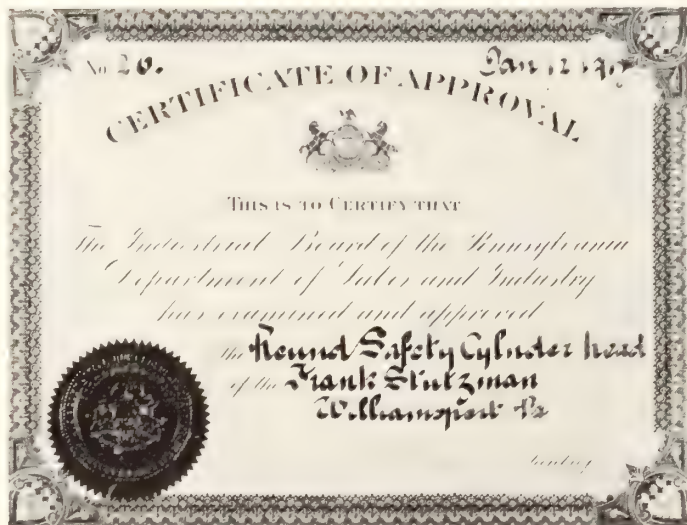 No 20.
Jan 12
CERTIFICATE OF APPROVAL
THIS IS TO CERTIFY THAT
The Industrial Board of the Pennsylvania
Department of Labor and Industry
has examined and approved
the Round Safety Cylinder head
of the Frank Stutzman
Williamsport Pa